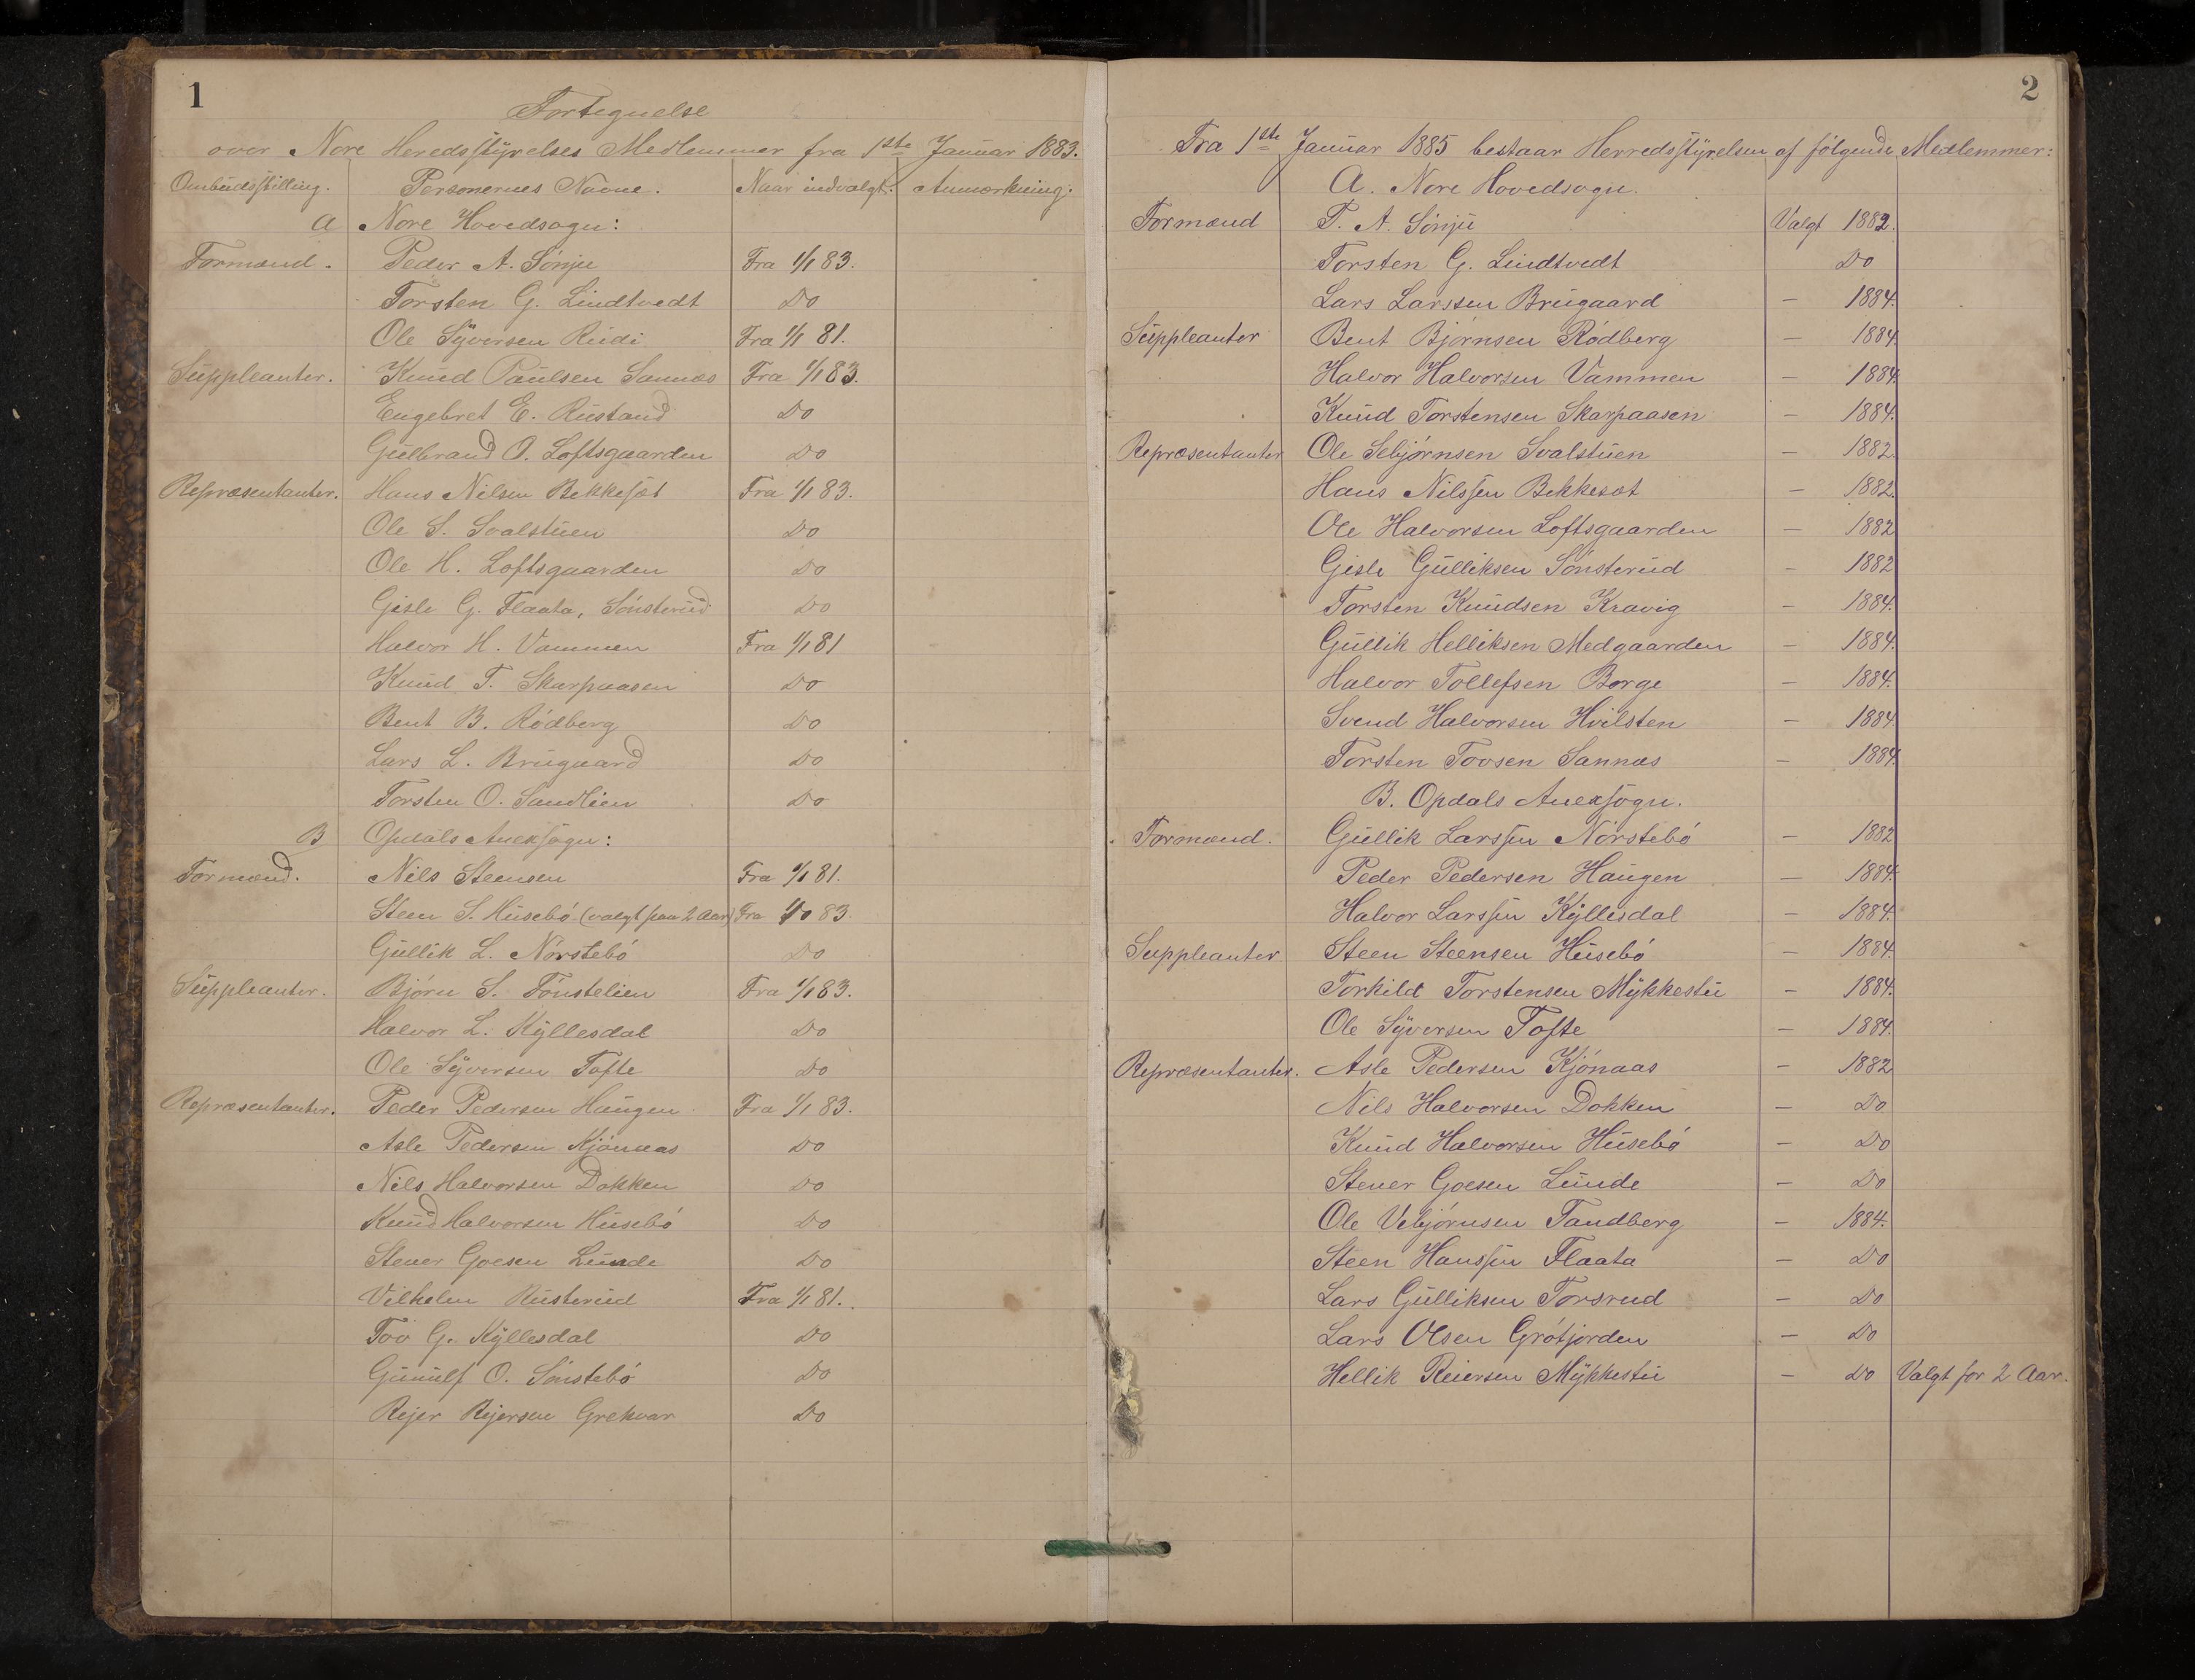 1
Fortegnelse
over Nore Heredsstyrelses Medlemmer fra 1ste Januar 1883.
Ombudsstilling. Personernes Navne. Naar indvalgt: Anmærkning.
A Nore Hovedsogn:
Formænd. Peder A. Sönju Fra 1/1 83.
Torsten G. Lindtvedt Do
Ole Syversen Ruidi Fra 1/1 81.
Suppleanter. Knud Paulsen Sannæs Fra 1/1 83.
Engebret E. Rustand Do
Gulbrand O. Loftsgaarden Do
Repræsentanter. Hans Nilsen Bekkesæt Fra 1/1 83.
Ole S. Svalstuen Do
Ole H. Loftsgaarden Do
Gisle G. Flaata, Sönsterud Do
Halvor H. Vammen Fra 1/1 81
Knud T. Skarpaasen Do
Bent B. Rödberg Do
Lars L. Brugaard Do
Torsten O. Sandlien Do
B Opdals Anexsogn:
Formænd. Nils Steensen Fra 1/1 81.
Steen S. Husebö (valgt paa 2 Aar) Fra 83.
Gullik L. Nörstebö Do
Suppleanter. Björn S. Tönstelien Fra 1/1 83.
Halvor L. Kyllesdal Do
Ole Syversen Tofte Do
Repræsentanter. Peder Pedersen Haugen Fra 1/1 83.
Asle Pedersen Kjönaas Do
Nils Halvorsen Dokken Do
Knud Halvorsen Husebö Do
Stener Goesen Lunde Do
Vilhelm Rusterud Fra 1/1 81.
Tov G. Kyllesdal Do
Gunulf O. Sönstebö Do
Rejer Rejersen Grekvar Do
2
Fra 1ste Januar 1885 bestaar Herredsstyrelsen af fölgende Medlemmer:
A. Nore Hovedsogn.
Formænd P. A. Sönju Valgt 1882.
Torsten G. Lindtvedt Do
Lars Larssen Brugaard — 1884.
Suppleanter Bent Björnsen Rödberg — 1884
Halvor Halvorsen Vammen — 1884
Knud Torstensen Skarpaasen — 1884.
Repræsentanter Ole Sebjörnsen Svalstuen — 1882
Hans Nilssen Bekkesæt — 1882.
Ole Halvorsen Loftsgaarden — 1882
Gisle Gulliksen Sönsterud — 1882
Torsten Knudsen Kravig — 1884.
Gullik Helliksen Medgaarden — 1884.
Halvor Tollefsen Borge — 1884.
Svend Halvorsen Hvilsten — 1884.
Torsten Tovsen Sannæs — 1884.
B. Opdals Anexsogn.
Formænd. Gullik Larssen Nörstebö — 1882
Peder Pedersen Haugen — 1884.
Halvor Larssen Kyllesdal — 1884.
Suppleanter Steen Steensen Husebö — 1884.
Torkild Torstensen Mykkestu — 1884.
Ole Syversen Tofte — 1884.
Repræsentanter. Asle Pedersen Kjönaas — 1882
Nils Halvorsen Dokken — Do
Knud Halvorsen Husebö — Do
Stener Goesen Lunde — Do
Ole Vebjörnsen Tandberg — 1884.
Steen Hanssen Flaata — Do
Lars Gulliksen Torsrud — Do
Lars Olsen Grötjorden — Do
Hellik Reiersen Mykkestu — Do Valgt for 2 Aar.